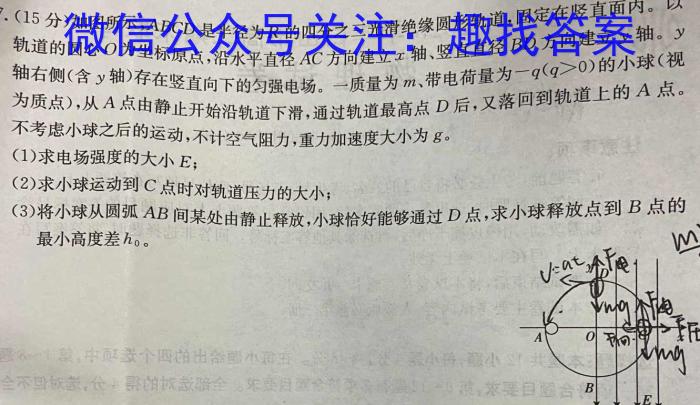 7.(15分)如图所示,ABCD是半径为R的四分之三光滑绝缘圆形轨道,固定在竖直面内。以
轨道的圆心O为坐标原点,沿水平直径AC方向建立x轴、竖直直径BD方向建立y轴。y
微信公众号关注:趣找答案
轴右侧(含y轴)存在竖直向下的匀强电场。一质量为m、带电荷量为-q(q>0)的小球(视
为质点),从A点由静止开始沿轨道下滑,通过轨道最高点D后,又落回到轨道上的A点。
不考虑小球之后的运动,不计空气阻力,重力加速度大小为g。
(1)求电场强度的大小E;
(2)求小球运动到C点时对轨道压力的大小;
(3)将小球从圆弧AB间某处由静止释放,小球恰好能够通过D点,求小球释放点到B点的
最小高度差h₀。
V=at F电
mg F电
A O
mg
B E